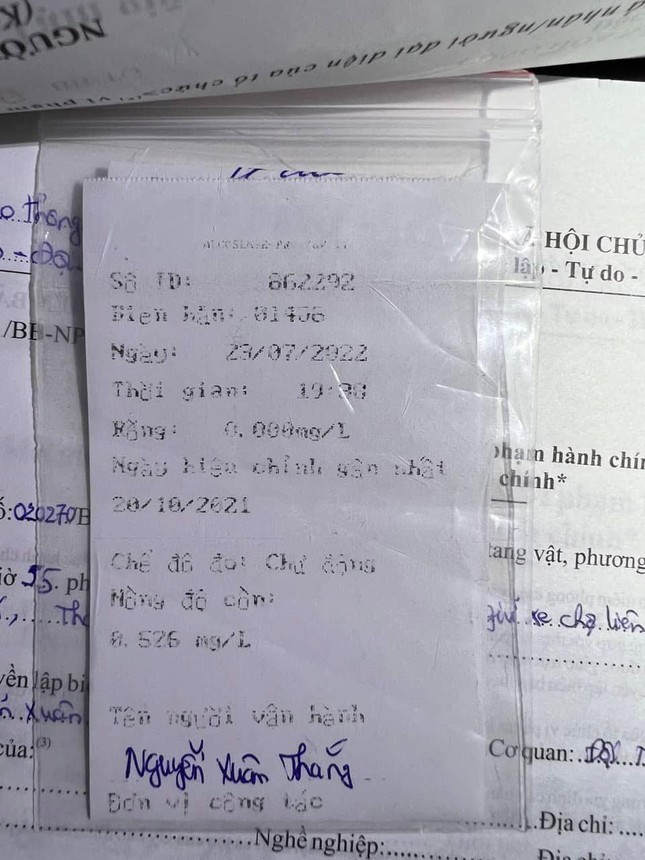 NGƯỜ
(K
nhân/người đại diện của tổ chức vi phạm
Số ID: 862292
Biên bản: 01436
Ngày: 23/07/2022
Thời gian: 19:30
Rỗng: 0.000mg/L
Ngày hiệu chỉnh gần nhất
20/10/2021
Chế độ đo: Chủ động
Nồng độ cồn:
0.526 mg/L
Tên người vận hành
Nguyễn Xuân Thắng
Đơn vị công tác
HỘI CHỦ
lập - Tự do -
/BB-NP
phạm hành chín
chính*
ố:020270/B
tang vật, phương
iờ 55. ph
yền lập bi
Xuân
của:(3)
Cơ quan:
Địa chỉ:
Nghề nghiệp: